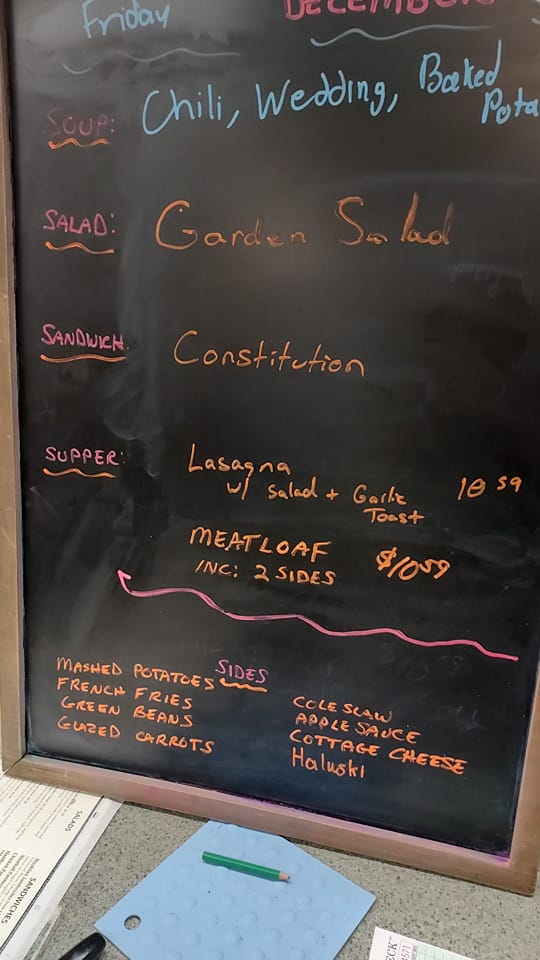 Friday DECEMBER
SOUP: Chili, Wedding, Baked
Pota
SALAD: Garden Salad
SANDWICH: Constitution
SUPPER: Lasagna
w/ Salad + Garlic 10 59
Toast
MEATLOAF $10 59
INC: 2 SIDES
SIDES
MASHED POTATOES
FRENCH FRIES
GREEN BEANS
GLAZED CARROTS
COLESLAW
APPLESAUCE
COTTAGE CHEESE
Haluski
SALADS
SANDWICHES
ECK
4571